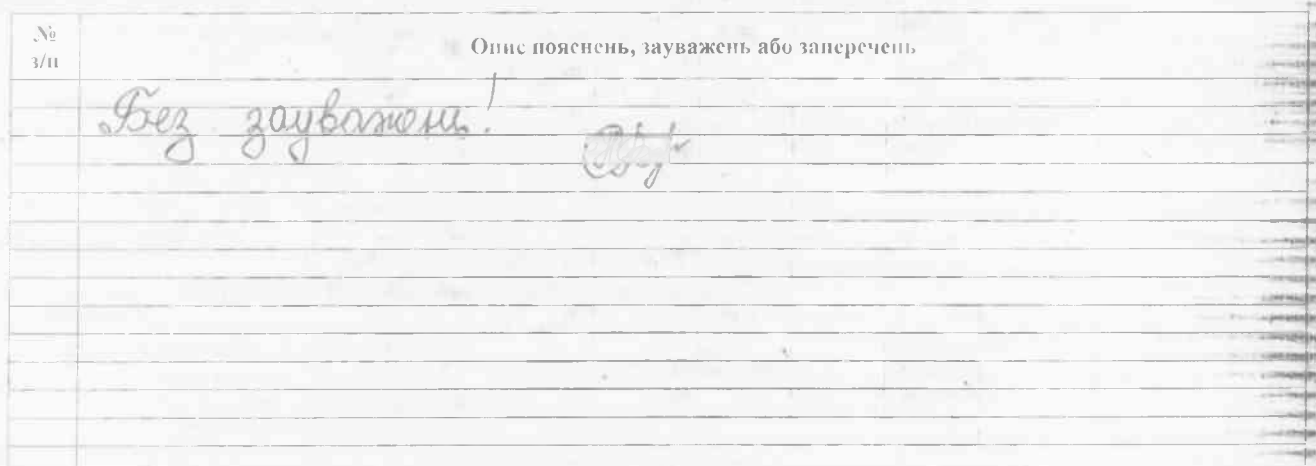 №
з/п
Опис пояснень, зауважень або заперечень
Без зауважень!